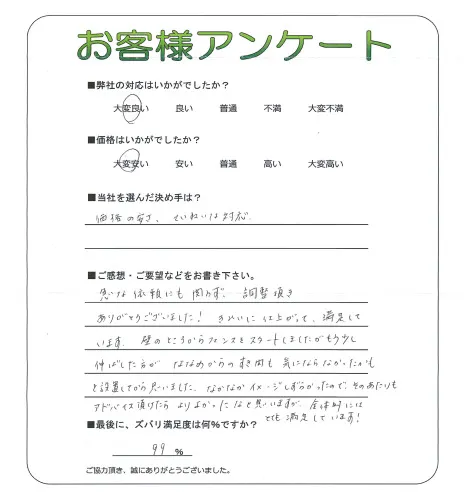 お客様アンケート
■弊社の対応はいかがでしたか？
大変良い 良い 普通 不満 大変不満
■価格はいかがでしたか？
大変安い 安い 普通 高い 大変高い
■当社を選んだ決め手は？
価格の安さ、ていねいな対応
■ご感想・ご要望などをお書き下さい。
急な依頼にも関わず、調整頂き
ありがとうございました！きれいに仕上がって、満足して
います。壁のところからフェンスをスタートしましたがもう少し
伸ばした方が ななめからのすき間も 気にならなかったかも
と設置してから思いました。なかなかイメージしずらかったので、そのあたりも
アドバイス頂けたら よりよかったなと思いますが、全体的には
とても満足しています！
■最後に、ズバリ満足度は何%ですか？
99 %
ご協力頂き、誠にありがとうございました。